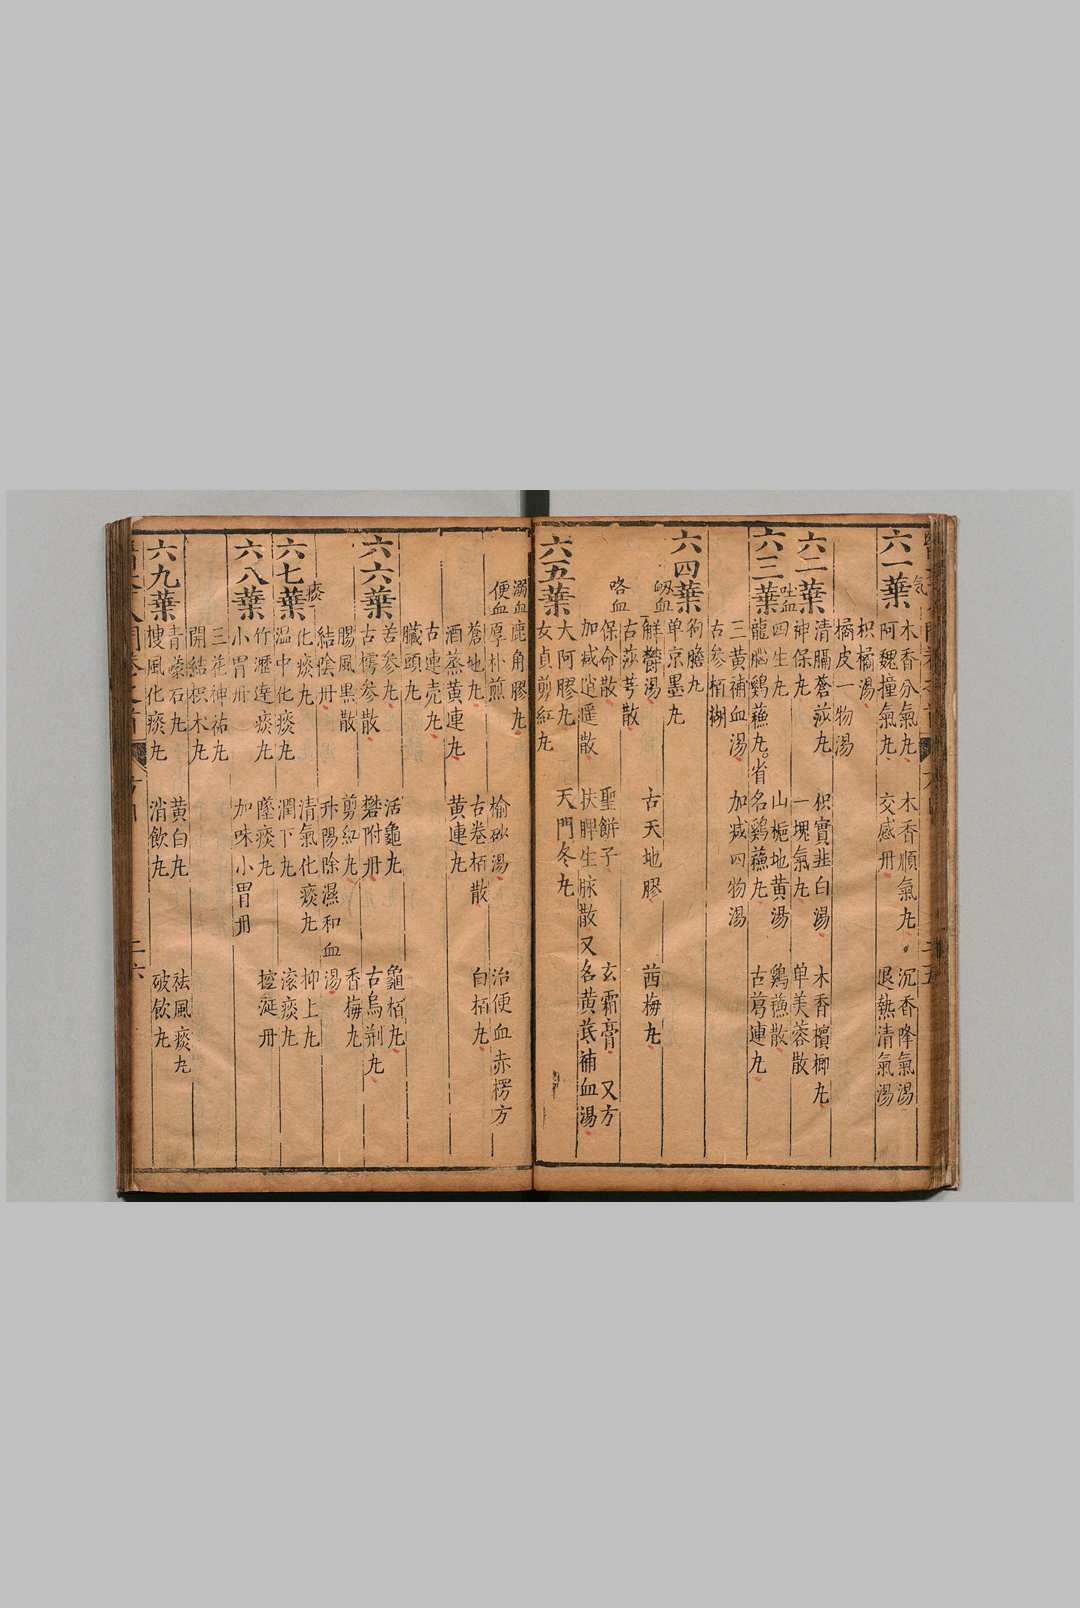 氣
六一葉
木香分氣丸 木香順氣丸 沉香降氣湯
阿魏撞氣丸 交感丹 退熱清氣湯
枳橘湯
橘皮一物湯
六二葉
清膈蒼莎丸 枳實韭白湯 木香檳榔丸
神保丸 一塊氣丸 單芙蓉散
吐血
四生丸 山梔地黃湯 鷄蘇散
六三葉
龍腦鷄蘇丸 省名鷄蘇丸 古葛連丸
三黃補血湯 加减四物湯
古參栢糊
六四葉
狗膽丸
单京墨丸
衂血
解鬱湯 古天地膠 茜梅丸
古莎芎散
咯血
保命散 聖餅子 玄霜膏 又方
加减逍遥散 扶脾生脉散 又名黃芪補血湯
六五葉
大阿膠丸 天門冬丸
女貞剪紅丸
溺血
鹿角膠丸 榆砂湯 治便血赤楞方
便血
厚朴煎 古卷栢散 白栢丸
蒼地丸
酒蒸黃連丸 黃連丸
古連壳丸
臟頭丸
六六葉
苦參丸 活龜丸 龜栢丸
古槵參散 礬附丹 古烏荆丸
腸風黑散 剪紅丸 香梅丸
結陰丹 升陽除濕和血湯
痰
六七葉
化痰丸 清氣化痰丸 抑上丸
温中化痰丸 潤下丸 滚痰丸
六八葉
竹瀝達痰丸 墜痰丸 控涎丹
小胃丹 加味小胃丹
三花神祐丸
開結枳木丸
六九葉
青礞石丸 黃白丸 祛風痰丸
搜風化痰丸 消飲丸 破飲丸